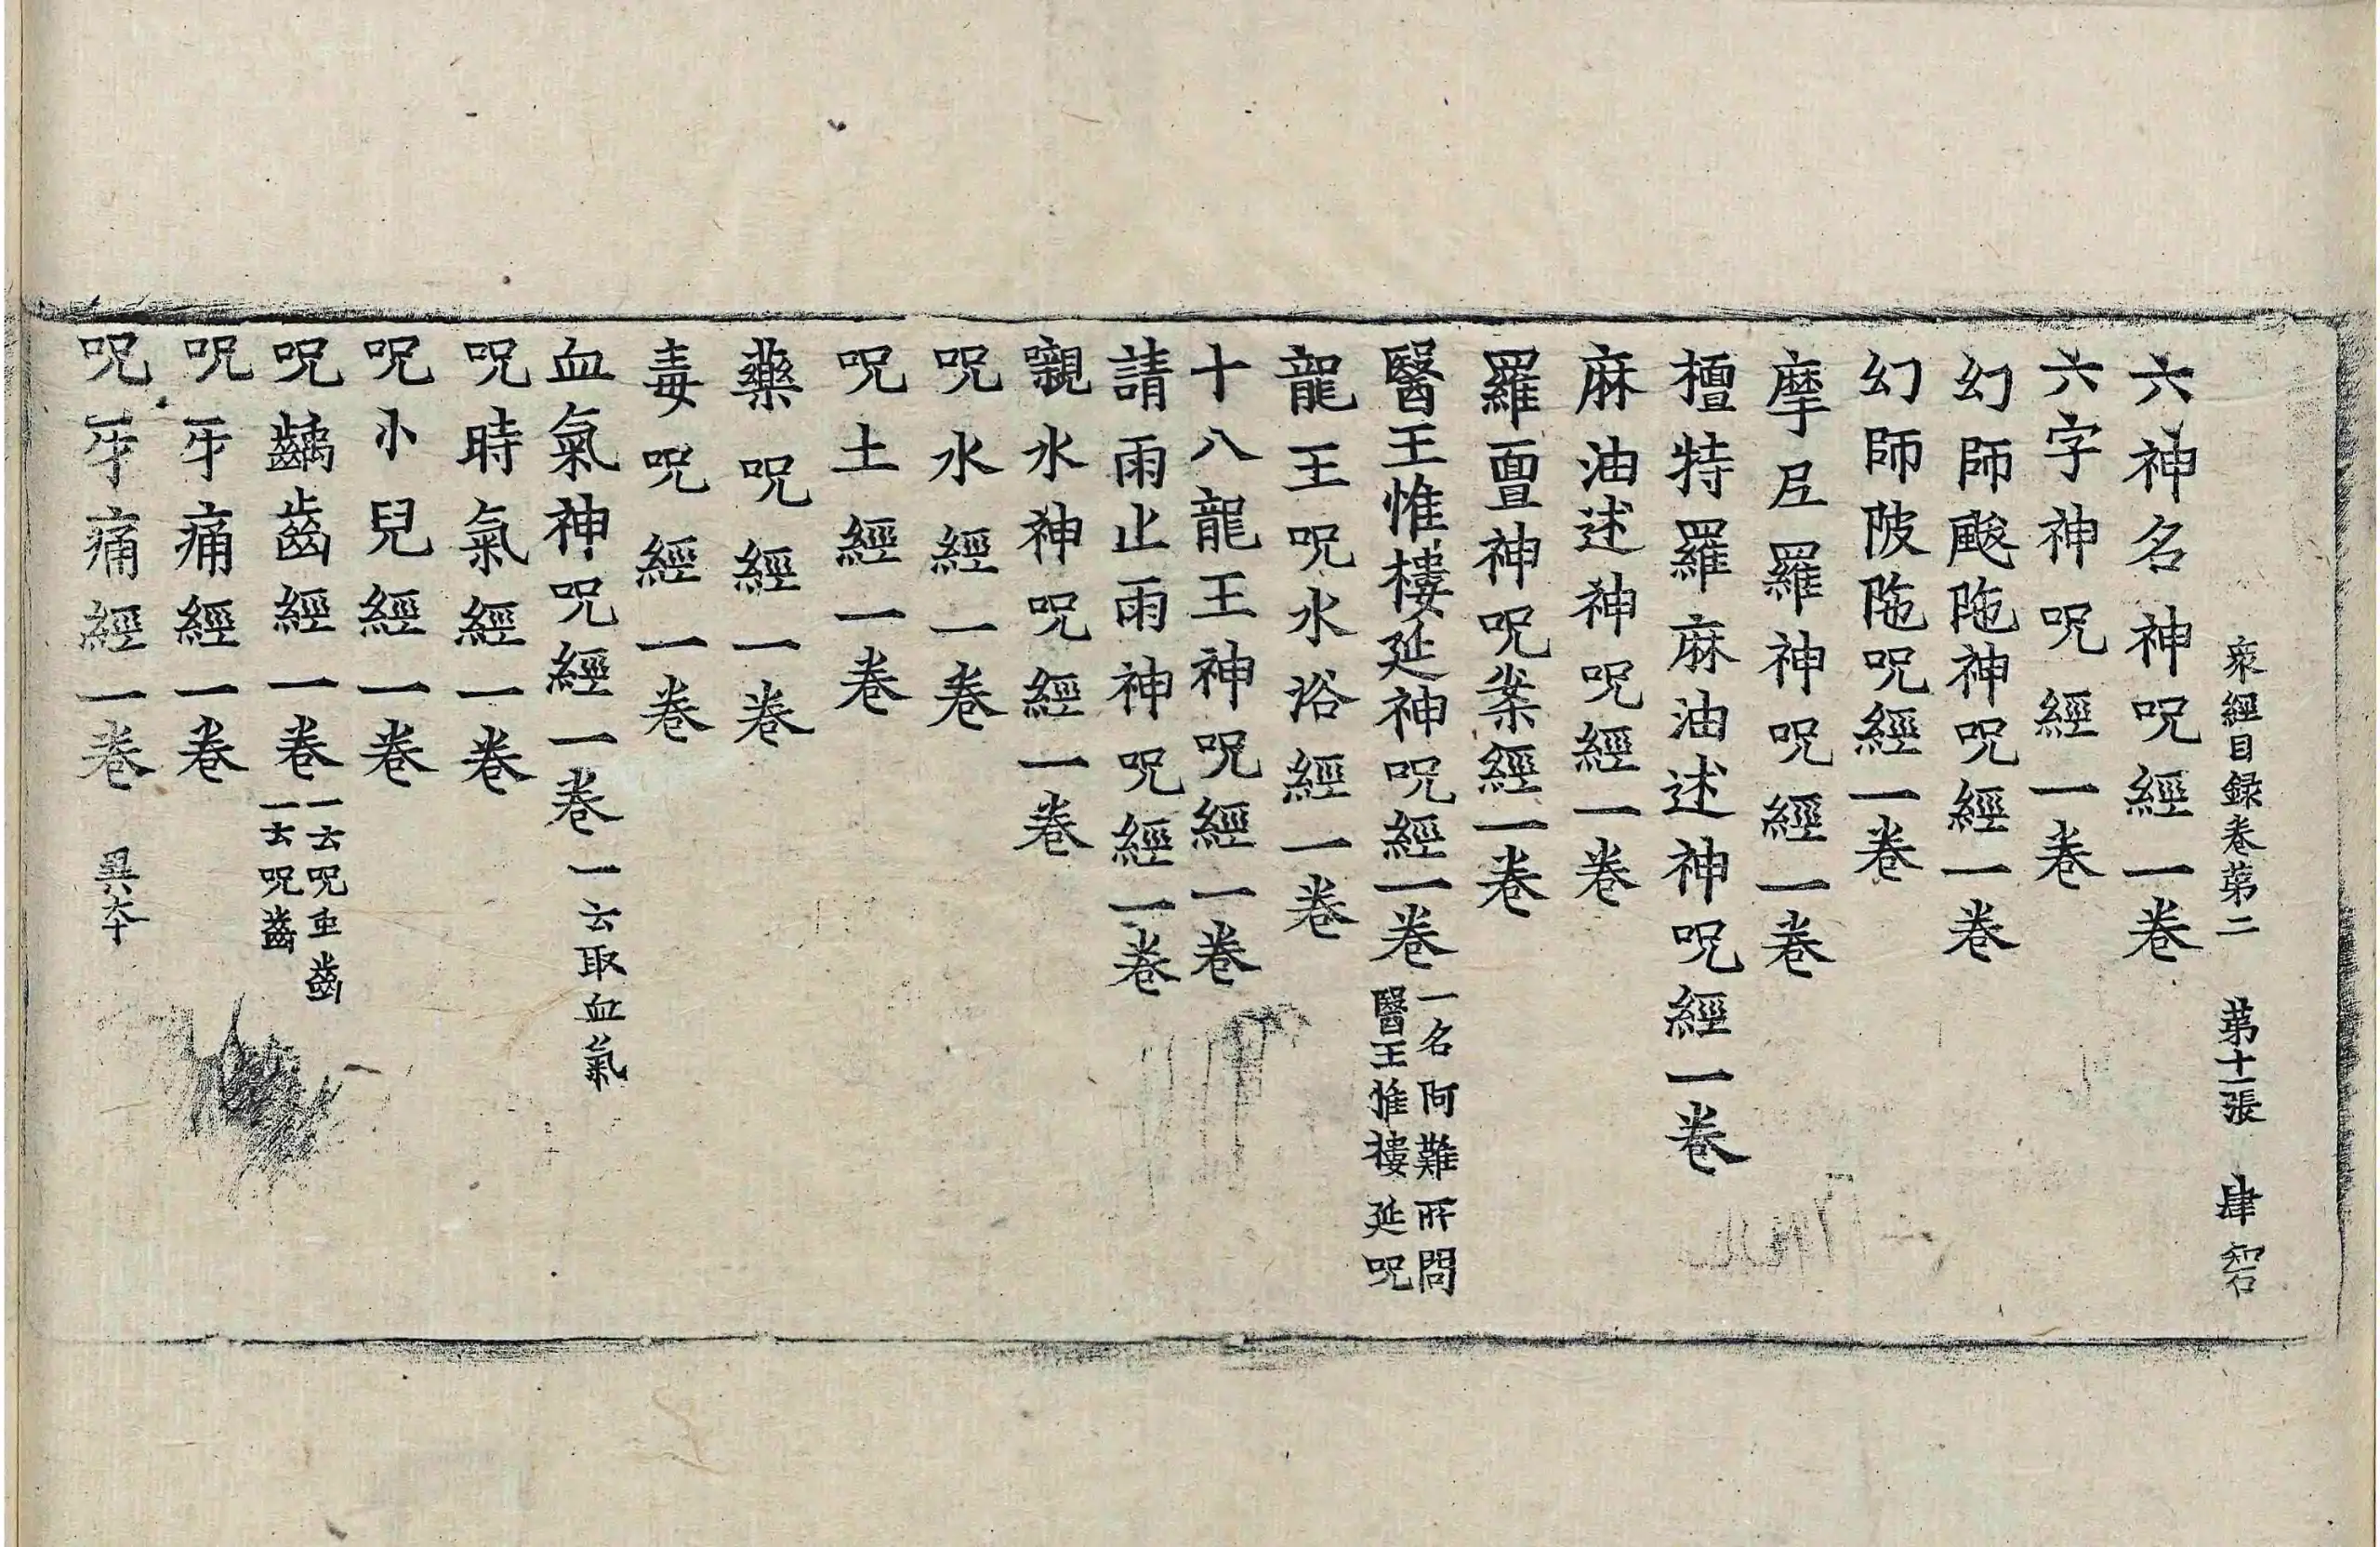 衆經目録卷苐二　苐十二張　肆　䂓
六神名神呪經一卷
六字神呪經一卷
幻師颰陁神呪經一卷
幻師陂陁呪經一卷
摩尼羅神呪經一卷
檀特羅麻油述神呪經一卷
麻油述神呪經一卷
羅亶神呪案經一卷
醫王惟樓延神呪經一卷
一名阿難所問
醫王惟樓延呪
龍王呪水浴經一卷
十八龍王神呪經一卷
請雨止雨神呪經一卷
嚫水神呪經一卷
呪水經一卷
呪土經一卷
藥呪經一卷
毒呪經一卷
血氣神呪經一卷一云取血氣
呪時氣經一卷
呪小兒經一卷
呪齲齒經一卷
一云呪虫齒
一云呪齒
呪牙痛經一卷
呪牙痛經一卷　異本